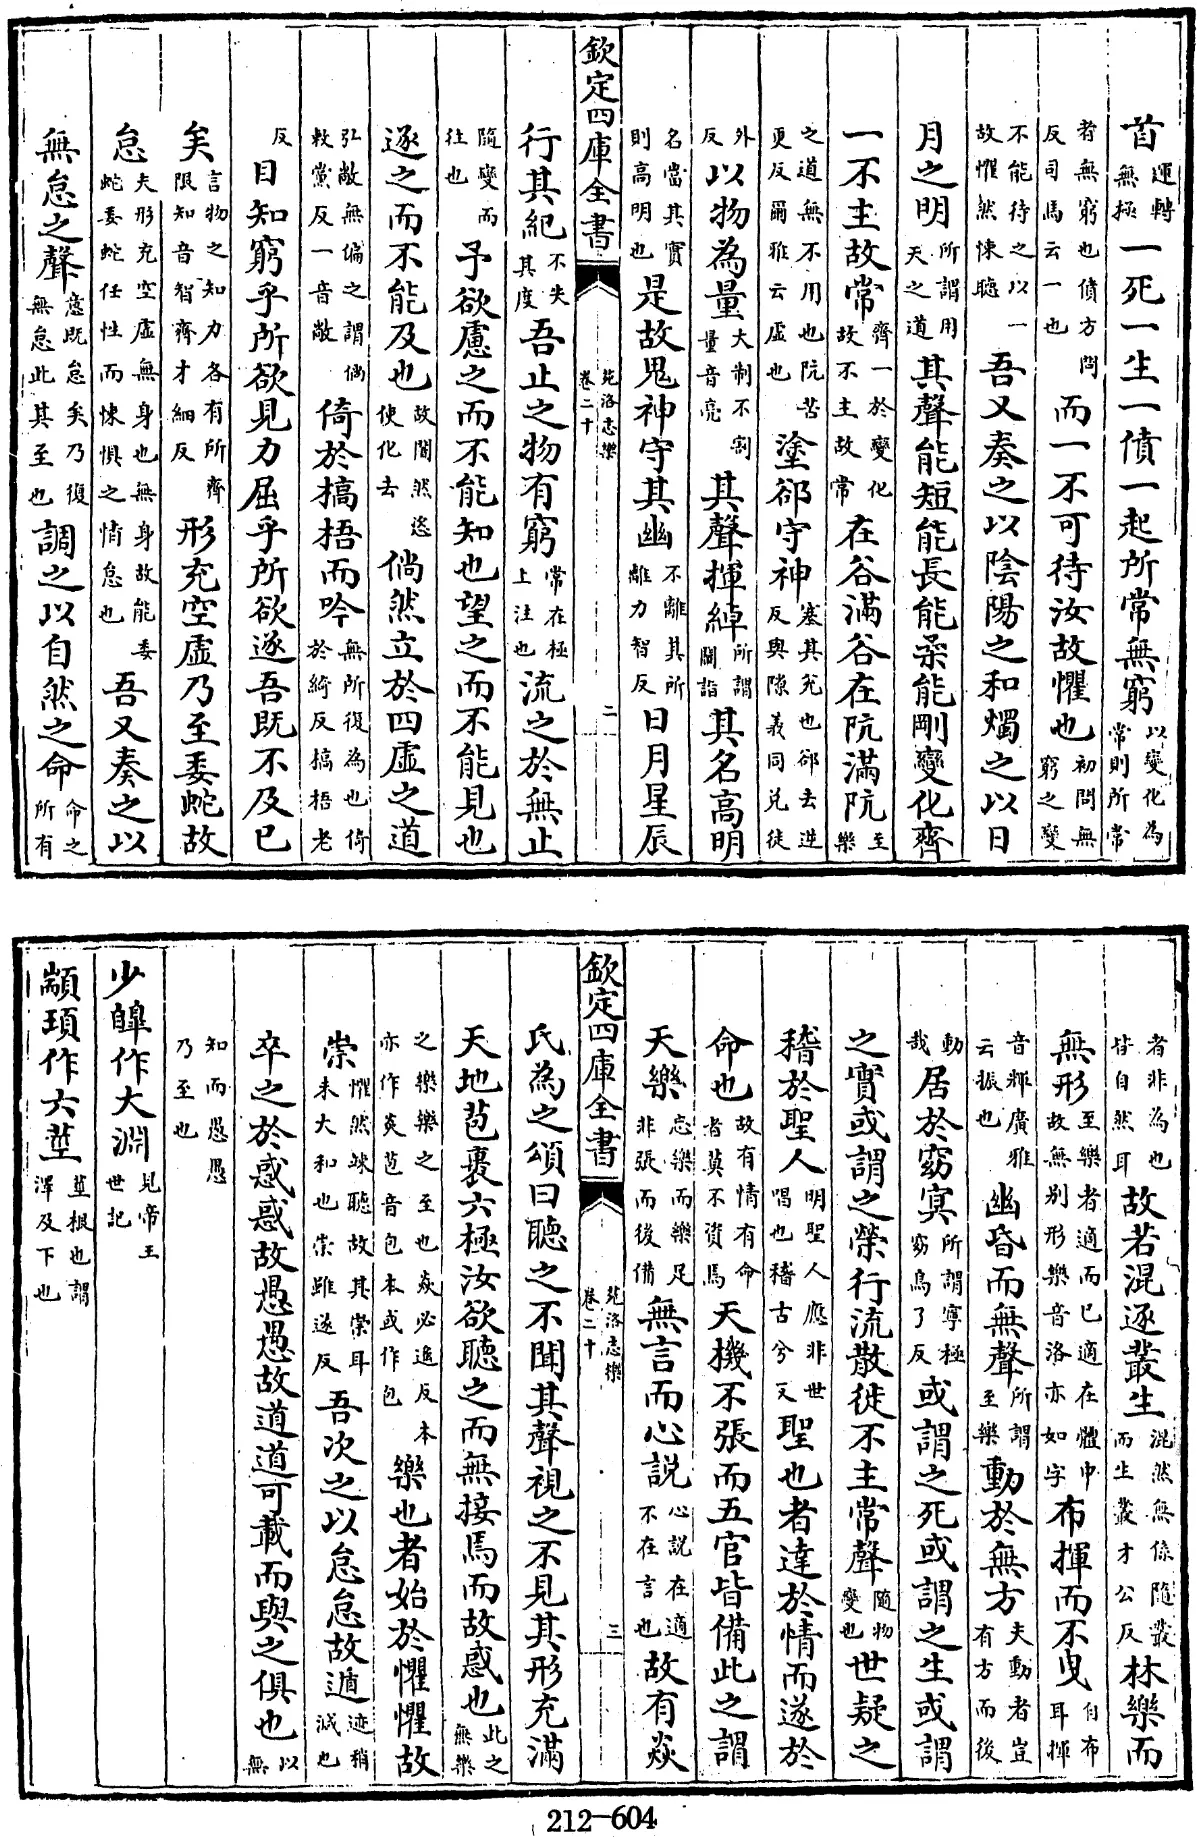 首運轉無極一死一生一僨一起所常無窮以變化為常則所常
者無窮也僨方問反司馬云一也而一不可待汝故懼也初問無窮之變
不能待之以一故懼然悚聽吾又奏之以陰陽之和燭之以日
月之明所謂用天之道其聲能短能長能柔能剛變化齊
一不主故常齊一於變化故不主故常在谷滿谷在阬滿阬至樂
之道無不用也阬苦更反爾雅云虛也塗郤守神塞其兌也郤去逆反與隙義同兌徒
外反以物為量大制不割量音亮其聲揮綽所謂闡諧其名高明
名當其實則高明也是故鬼神守其幽不離其所離力智反日月星辰
欽定四庫全書
苑洛志樂
卷二十
二
行其紀不失其度吾止之物有窮常在極上注也流之於無止
隨變而往也予欲慮之而不能知也望之而不能見也
逐之而不能及也故闇然恣使化去倘然立於四虛之道
弘敞無偏之謂倘敕黨反一音敞倚於槁梧而吟無所復為也倚於綺反槁梧老
反目知窮乎所欲見力屈乎所欲逐吾既不及已
矣言物之知力各有所齊限知音智齊才細反形充空虛乃至委蛇故
怠夫形充空虛無身也無身故能委蛇委蛇任性而悚懼之情怠也吾又奏之以
無怠之聲意既怠矣乃復無怠此其至也調之以自然之命命之所有
者非為也皆自然耳故若混逐叢生混然無係隨叢而生叢才公反林樂而
無形至樂者適而已適在體中故無別形樂音洛亦如字布揮而不曳自布耳揮
音輝廣雅云振也幽昏而無聲所謂至樂動於無方夫動者豈有方而後
動哉居於窈冥所謂寧極窈烏了反或謂之死或謂之生或謂
之實或謂之榮行流散徙不主常聲隨物變也世疑之
稽於聖人明聖人應非世唱也稽古兮反聖也者達於情而遂於
命也故有情有命者莫不資焉天機不張而五官皆備此之謂
天樂忘樂而樂足非張而後備無言而心說心說在適不在言也故有焱
欽定四庫全書
苑洛志樂
卷二十
三
氏為之頌曰聽之不聞其聲視之不見其形充滿
天地苞裹六極汝欲聽之而無接焉而故惑也此之無樂
之樂樂之至也焱必遙反本亦作炎苞音包本或作包樂也者始於懼懼故
祟懼然竦聽故其祟耳未大和也祟雖遂反吾次之以怠怠故遁迹稍滅也
卒之於惑惑故愚愚故道道可載而與之俱也以無
知而愚愚乃至也
少皥作大淵見帝王世記
顓頊作六莖莖根也謂澤及下也
212-604